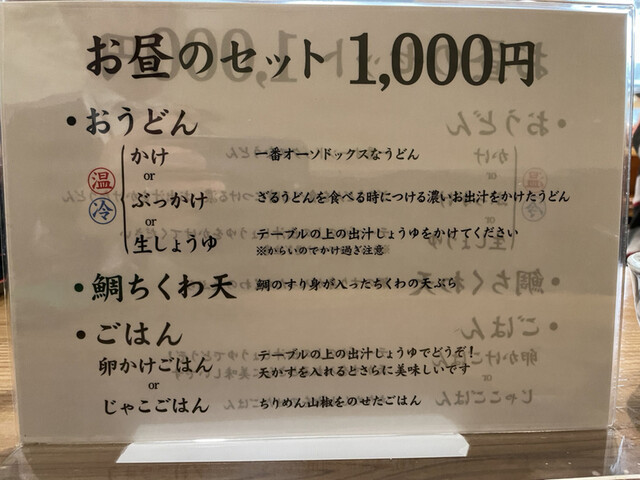 お昼のセット 1,000円
・おうどん
温
冷
かけ 一番オーソドックスなうどん
or
ぶっかけ ざるうどんを食べる時につける濃いお出汁をかけたうどん
or
生しょうゆ テーブルの上の出汁しょうゆをかけてください
※からいのでかけ過ぎ注意
・鯛ちくわ天 鯛のすり身が入ったちくわの天ぷら
・ごはん
卵かけごはん テーブルの上の出汁しょうゆでどうぞ!
天かすを入れるとさらに美味しいです
or
じゃこごはん ちりめん山椒をのせたごはん